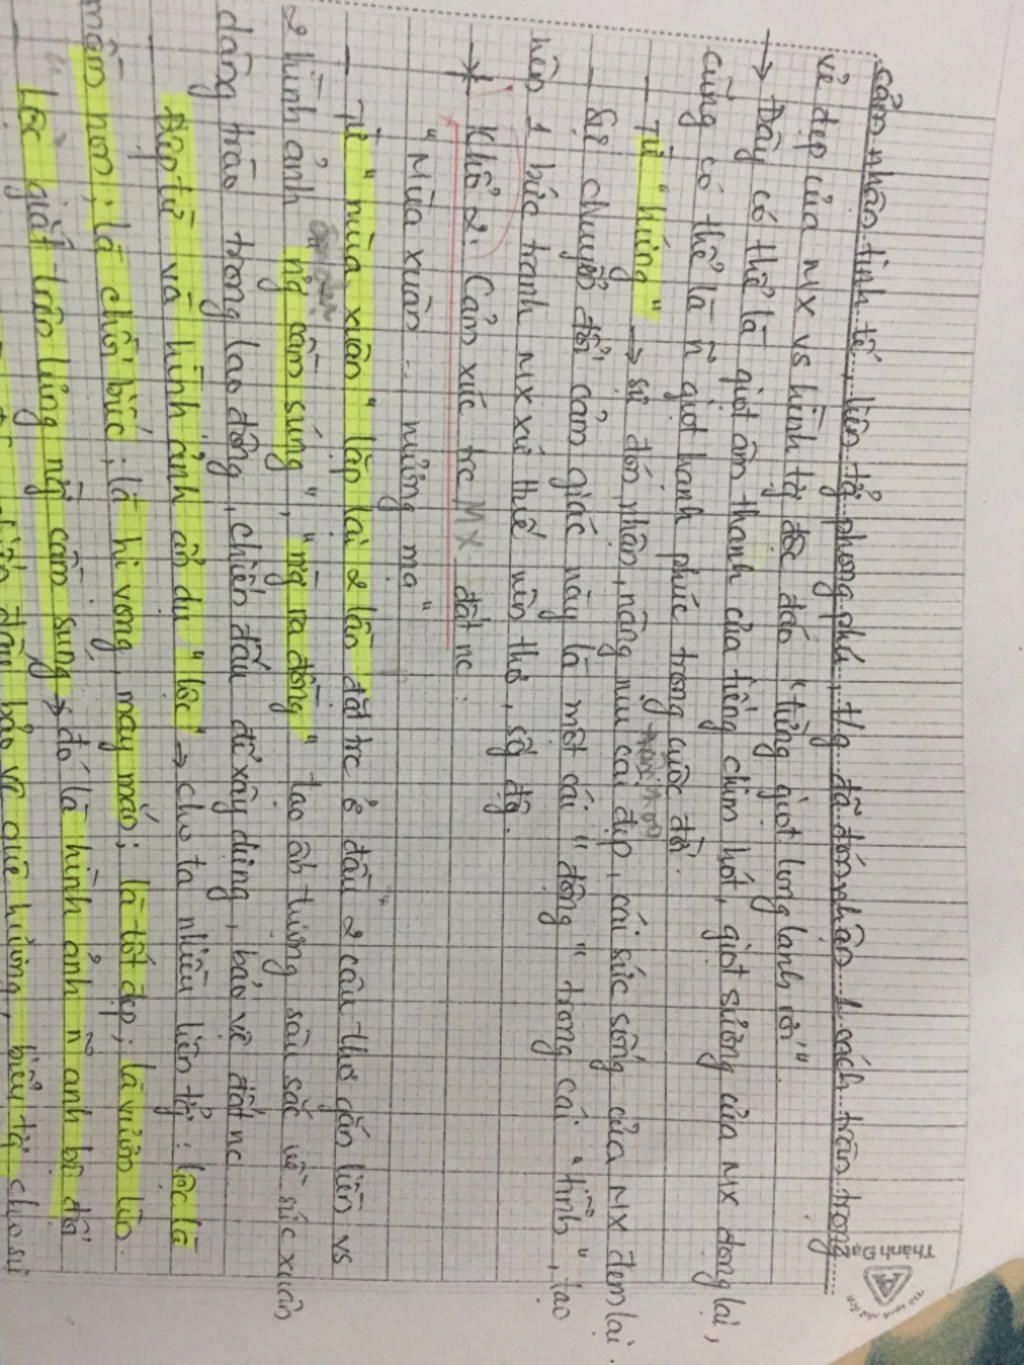 cảm nhận tinh tế, liên tg̉ phong phú, t/g đã đón nhận 1 cách trân trọng
vẻ đẹp của MX vs hình tg̉ độc đáo "từng giọt long lanh rơi"
→ Đây có thể là giọt âm thanh của tiếng chim hót, giọt sương của MX đọng lại,
cũng có thể là ~n giọt hạnh phúc trong cuộc đời.
- Từ "hứng" → sự đón nhận, nâng niu cái đẹp, cái sức sống của MX đem lại.
- Sự chuyển đổi cảm giác này là một cái "động" trong cái "tĩnh", tạo
nên 1 bức tranh MX xứ Huế nên thơ, số đg.
* Khổ 2: Cảm xúc trc MX đất nc:
"Mùa xuân ... nương mạ"
- Từ "mùa xuân" lặp lại 2 lần đặt trc ở đầu 2 câu thơ gắn liền vs
2 hình ảnh "ng cầm súng", "ng ra đồng" tạo ấn tượng sâu sắc về sức xuân
dâng trào trong lao động, chiến đấu để xây dựng, bảo vệ đất nc
- Điệp từ và hình ảnh ẩn dụ "lộc" → cho ta nhiều liên tg̉: lộc là
mầm non; là chồi biếc; là hi vọng, may mắn; là tốt đẹp; là vươn lên.
- Lộc giắt trên lưng ng̀ cầm súng → đó là hình ảnh anh bộ đội
bảo vệ quê hương, biểu tg̉ cho sự
Thành Đạt